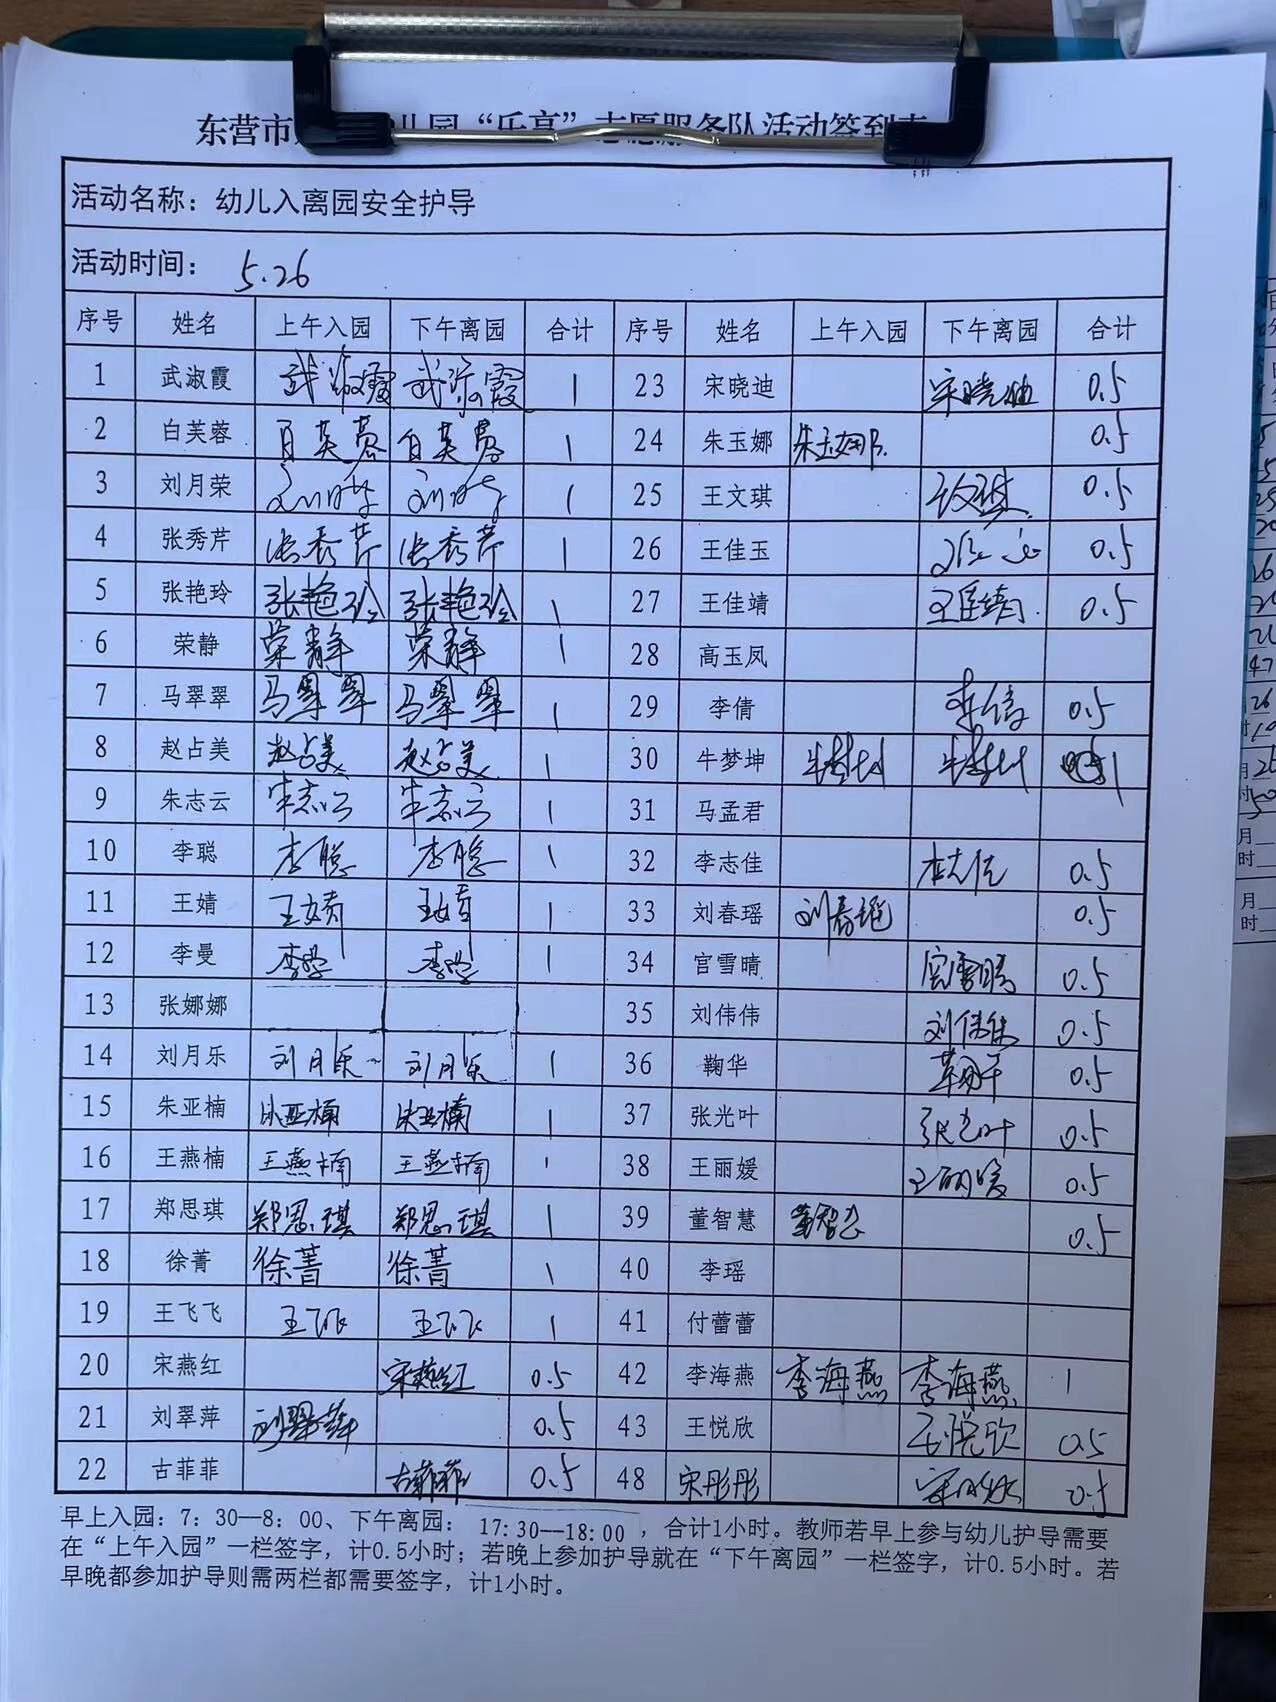 东营市 儿园“乐享”志愿服务队活动签到表
活动名称：幼儿入离园安全护导
活动时间： 5.26
序号 姓名 上午入园 下午离园 合计 序号 姓名 上午入园 下午离园 合计
1 武淑霞 武淑霞 武淑霞 1 23 宋晓迪 宋晓迪 0.5
2 白芙蓉 白芙蓉 白芙蓉 1 24 朱玉娜 朱玉娜 0.5
3 刘月荣 刘月荣 刘月荣 1 25 王文琪 0.5
4 张秀芹 张秀芹 张秀芹 1 26 王佳玉 0.5
5 张艳玲 张艳玲 张艳玲 1 27 王佳靖 王佳靖 0.5
6 荣静 荣静 荣静 1 28 高玉凤
7 马翠翠 马翠翠 马翠翠 1 29 李倩 李倩 0.5
8 赵占美 赵占美 赵占美 1 30 牛梦坤 牛梦坤 牛梦坤 1
9 朱志云 朱志云 朱志云 1 31 马孟君
10 李聪 李聪 李聪 1 32 李志佳 李志佳 0.5
11 王婧 王婧 王婧 1 33 刘春瑶 刘春瑶 0.5
12 李曼 李曼 李曼 1 34 官雪晴 官雪晴 0.5
13 张娜娜 35 刘伟伟 刘伟伟 0.5
14 刘月乐 刘月乐 刘月乐 1 36 鞠华 鞠华 0.5
15 朱亚楠 朱亚楠 朱亚楠 1 37 张光叶 张光叶 0.5
16 王燕楠 王燕楠 王燕楠 1 38 王丽媛 王丽媛 0.5
17 郑思琪 郑思琪 郑思琪 1 39 董智慧 董智慧 0.5
18 徐菁 徐菁 徐菁 1 40 李瑶
19 王飞飞 王飞飞 王飞飞 1 41 付蕾蕾
20 宋燕红 宋燕红 0.5 42 李海燕 李海燕 李海燕 1
21 刘翠萍 刘翠萍 0.5 43 王悦欣 王悦欣 0.5
22 古菲菲 古菲菲 0.5 48 宋彤彤 0.5
早上入园：7：30—8：00、下午离园： 17:30—18:00 ，合计1小时。教师若早上参与幼儿护导需要
在“上午入园”一栏签字，计0.5小时；若晚上参加护导就在“下午离园”一栏签字，计0.5小时。若
早晚都参加护导则需两栏都需要签字，计1小时。